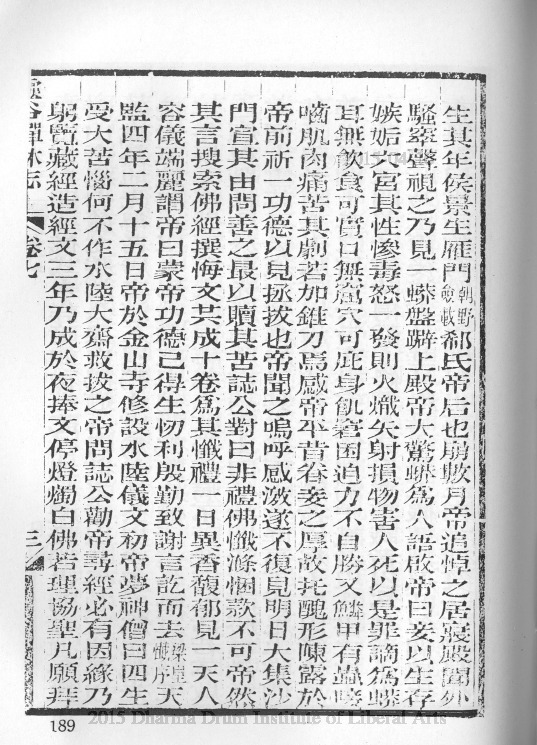 生其年侯景生雁門朝野僉載郗氏帝后也崩數月帝追悼之居寢殿聞外
騷窣聲視之乃見一蟒盤躃上殿帝大驚蟒為人語啟帝曰妾以生存
嫉妬六宮其性慘毒怒一發則火熾矢射損物害人死以是罪謫為蟒
耳無飲食可實口無窟穴可庇身飢窘困迫力不自勝又鱗甲有蟲唼
嚙肌肉痛苦其劇若加錐刀焉感帝平昔眷妾之厚故托醜形陳露於
帝前祈一功德以見拯拔也帝聞之嗚呼感激遂不復見明日大集沙
門宣其由問善之最以贖其苦誌公對曰非禮佛懺滌悃款不可帝然
其言搜索佛經撰悔文共成十卷為其懺禮一日異香馥郁見一天人
容儀端麗謂帝曰蒙帝功德已得生忉利殷勤致謝言訖而去梁皇懺序天
監四年二月十五日帝於金山寺修設水陸儀文初帝夢神僧曰四生
受大苦惱何不作水陸大齋救拔之帝問誌公勸帝尋經必有因緣乃
躬覽藏經造經文三年乃成於夜捧文停燈燭白佛若理協聖凡願拜
靈谷禪林志
卷七
三
189
2015 Dharma Drum Institute of Liberal Arts